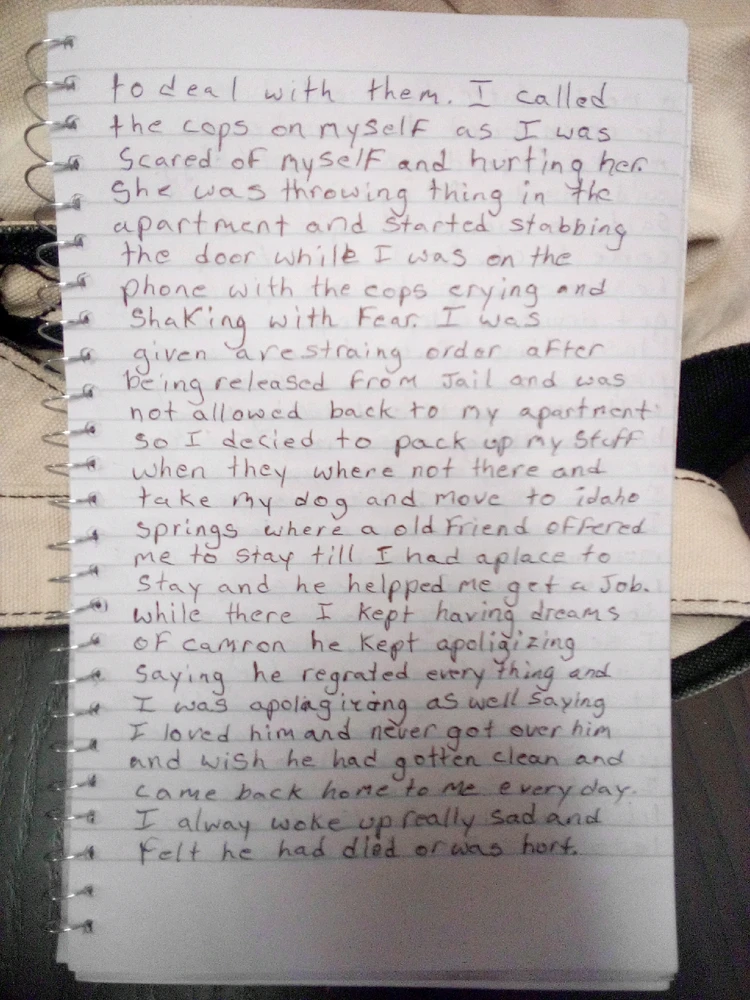 to deal with them. I called
the cops on myself as I was
scared of myself and hurting her.
She was throwing thing in the
apartment and started stabbing
the door while I was on the
phone with the cops crying and
shaking with fear. I was
given a restraing order after
being released from Jail and was
not allowed back to my apartment
so I decied to pack up my stuff
when they where not there and
take my dog and move to idaho
springs where a old friend offered
me to stay till I had aplace to
stay and he helpped me get a Job.
while there I kept having dreams
of camron he kept apoligizing
saying he regrated every thing and
I was apolagizing as well saying
I loved him and never got over him
and wish he had gotten clean and
came back home to me every day.
I alway woke up really sad and
felt he had died or was hort.